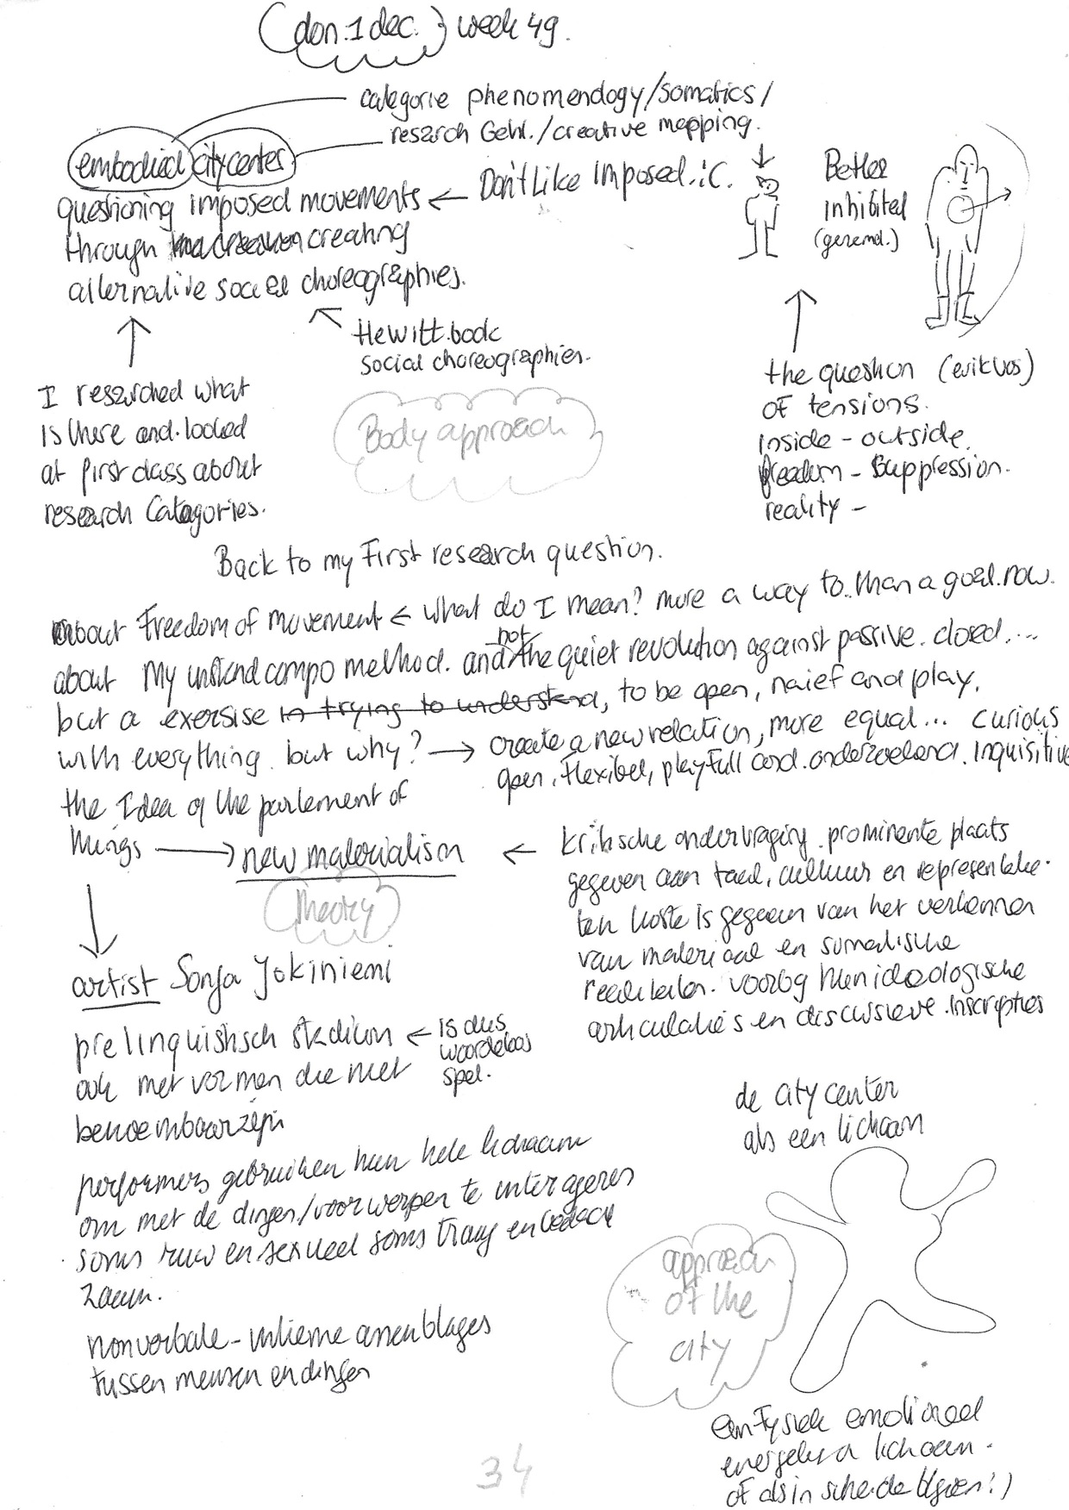 (don. 1 dec.) week 49.
categorie phenomenology/somatics/
research Gehl./creative mapping.
embodied citycenter
questioning imposed movements ← Don't Like Imposed.
through creating
alternative social choreographies.
Better
inhibited
(geremd.)
Hewitt. book
social choreographies.
I researched what
is there and looked
at first class about
research Categories.
Body approach
the question
of tensions.
inside - outside.
freedom - Suppression.
reality -
Back to my First research question.
about Freedom of movement < what do I mean? more a way to.. than a goal. now.
about My instand compo method. and not the quiet revolution against passive. closed....
but a exersise in trying to understand, to be open, naief and play.
with everything. but why? → create a new relation, more equal... curious
open, flexibel, playfull and. onderzoekend. inquisitive
the Idea of the parlement of
things → new materialism
Theory
← kritische ondervraging. prominente plaats
gegeven aan taal, cultuur en representatie.
ten koste is gegaan van het verkennen
van materiaal en somatische
realiteiten. voorbij hun ideologische
articulaties en discursieve inscripties
artist Sonja Jokiniemi
prelinguistisch stadium ← is dus
woordeloos
spel.
ook met vormen die niet
benoembaar zijn
performers gebruiken hun hele lichaam
om met de dingen/voorwerpen te interageren
soms ruw en sexueel soms traag en bedacht
zaam.
nonverbale - intieme assemblages
tussen mensen en dingen
de city center
als een lichaam
approach
of the
city
een fysiek emotioneel
energetisch lichaam.
of als in
34